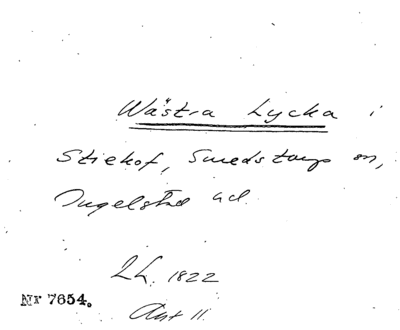 Wästra Lycka i
Stiehof, Smedstorps sn,
Ingelstad hd.
LL. 1822
Akt 11.
Nr 7654.